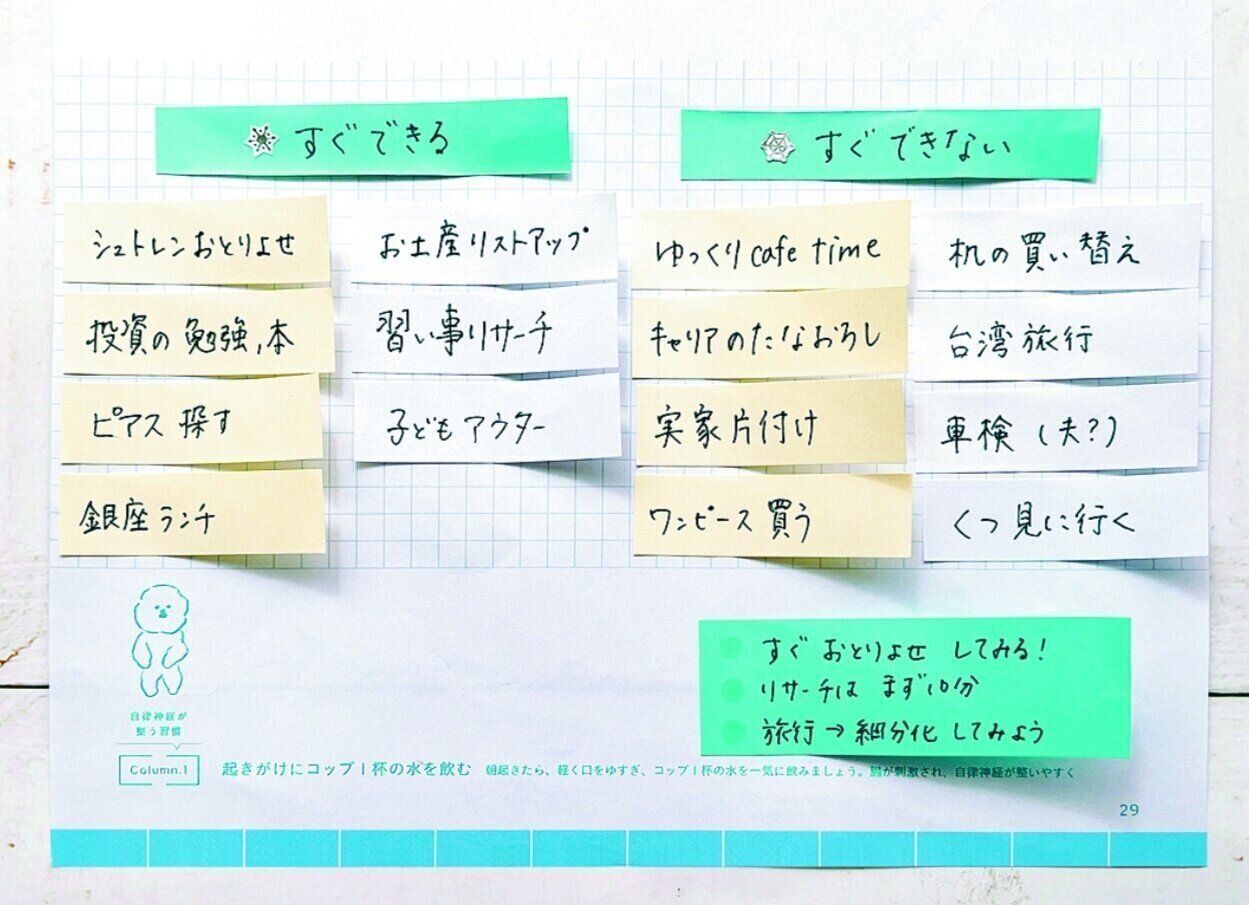 すぐできる
すぐできない
シュトレンおとりよせ
投資の勉強,本
ピアス 探す
銀座ランチ
お土産リストアップ
習い事リサーチ
子どもアウター
ゆっくりcafe time
キャリアのたなおろし
実家片付け
ワンピース買う
机の買い替え
台湾旅行
車検(夫?)
くつ見に行く
すぐ おとりよせ してみる!
リサーチは まず10分
旅行→細分化してみよう
自律神経が
整う習慣
Column.1
起きがけにコップ1杯の水を飲む 朝起きたら、軽く口をゆすぎ、コップ1杯の水を一気に飲みましょう。腸が刺激され、自律神経が整いやすく
29